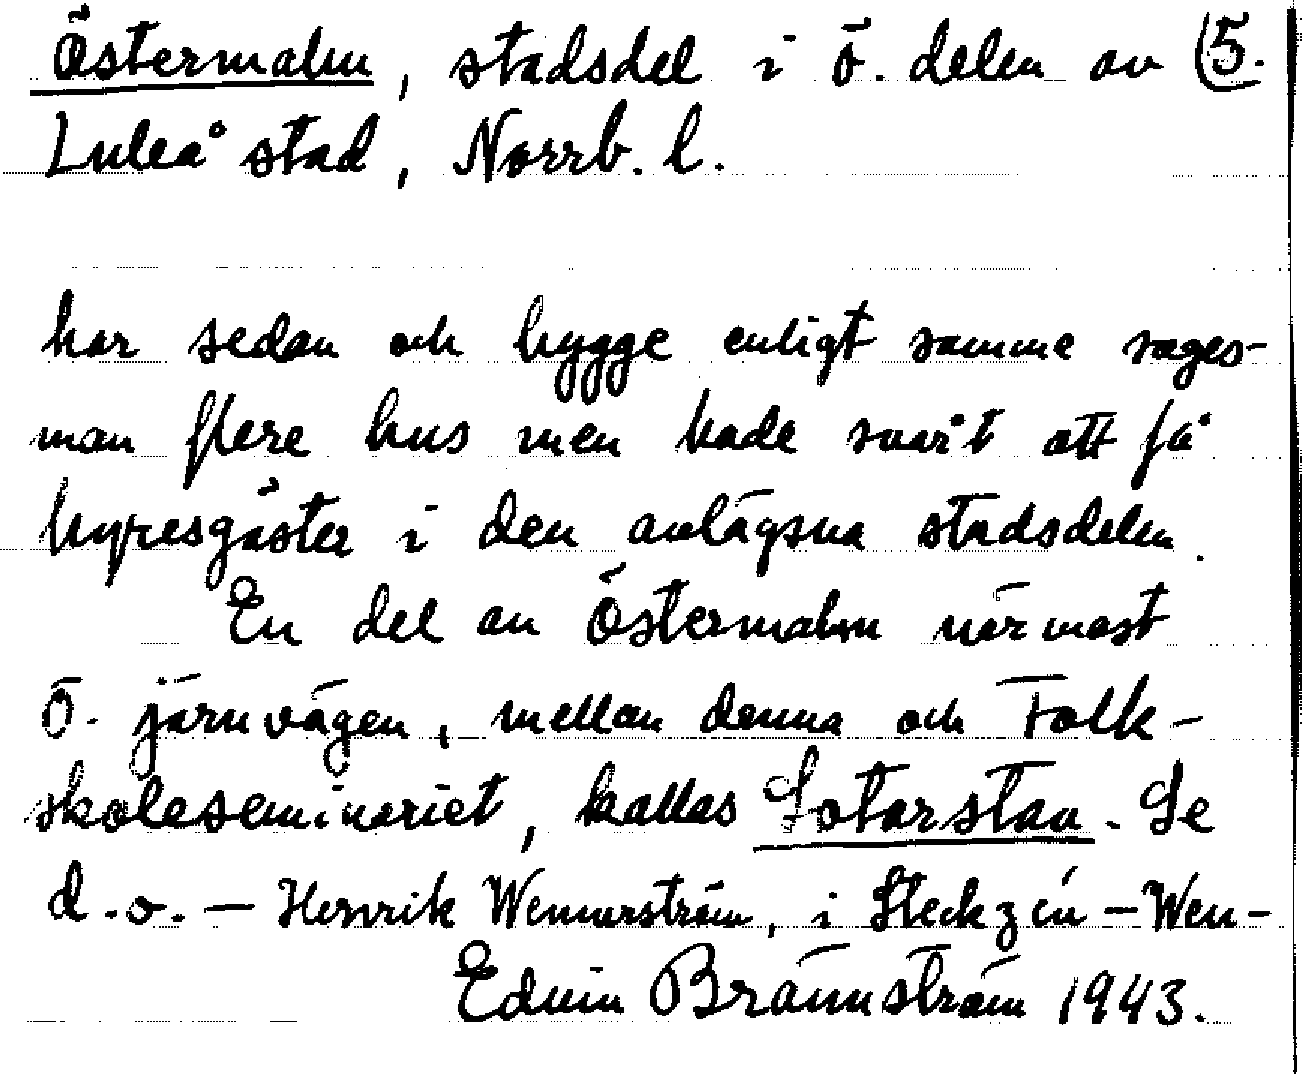 Östermalm, stadsdel i ö. delen av (5.
Luleå stad, Norrb. l.
har sedan och bygge enligt samme sages-
man flere hus men hade svårt att få
hyresgäster i den avlägsna stadsdelen.
En del av Östermalm närmast
ö. järnvägen, mellan denna och Folk-
skoleseminariet, kallas Sotarstan. Se
d.o. - Henrik Wennerström, i Steckzén-Wen-
Edvin Brännström 1943.